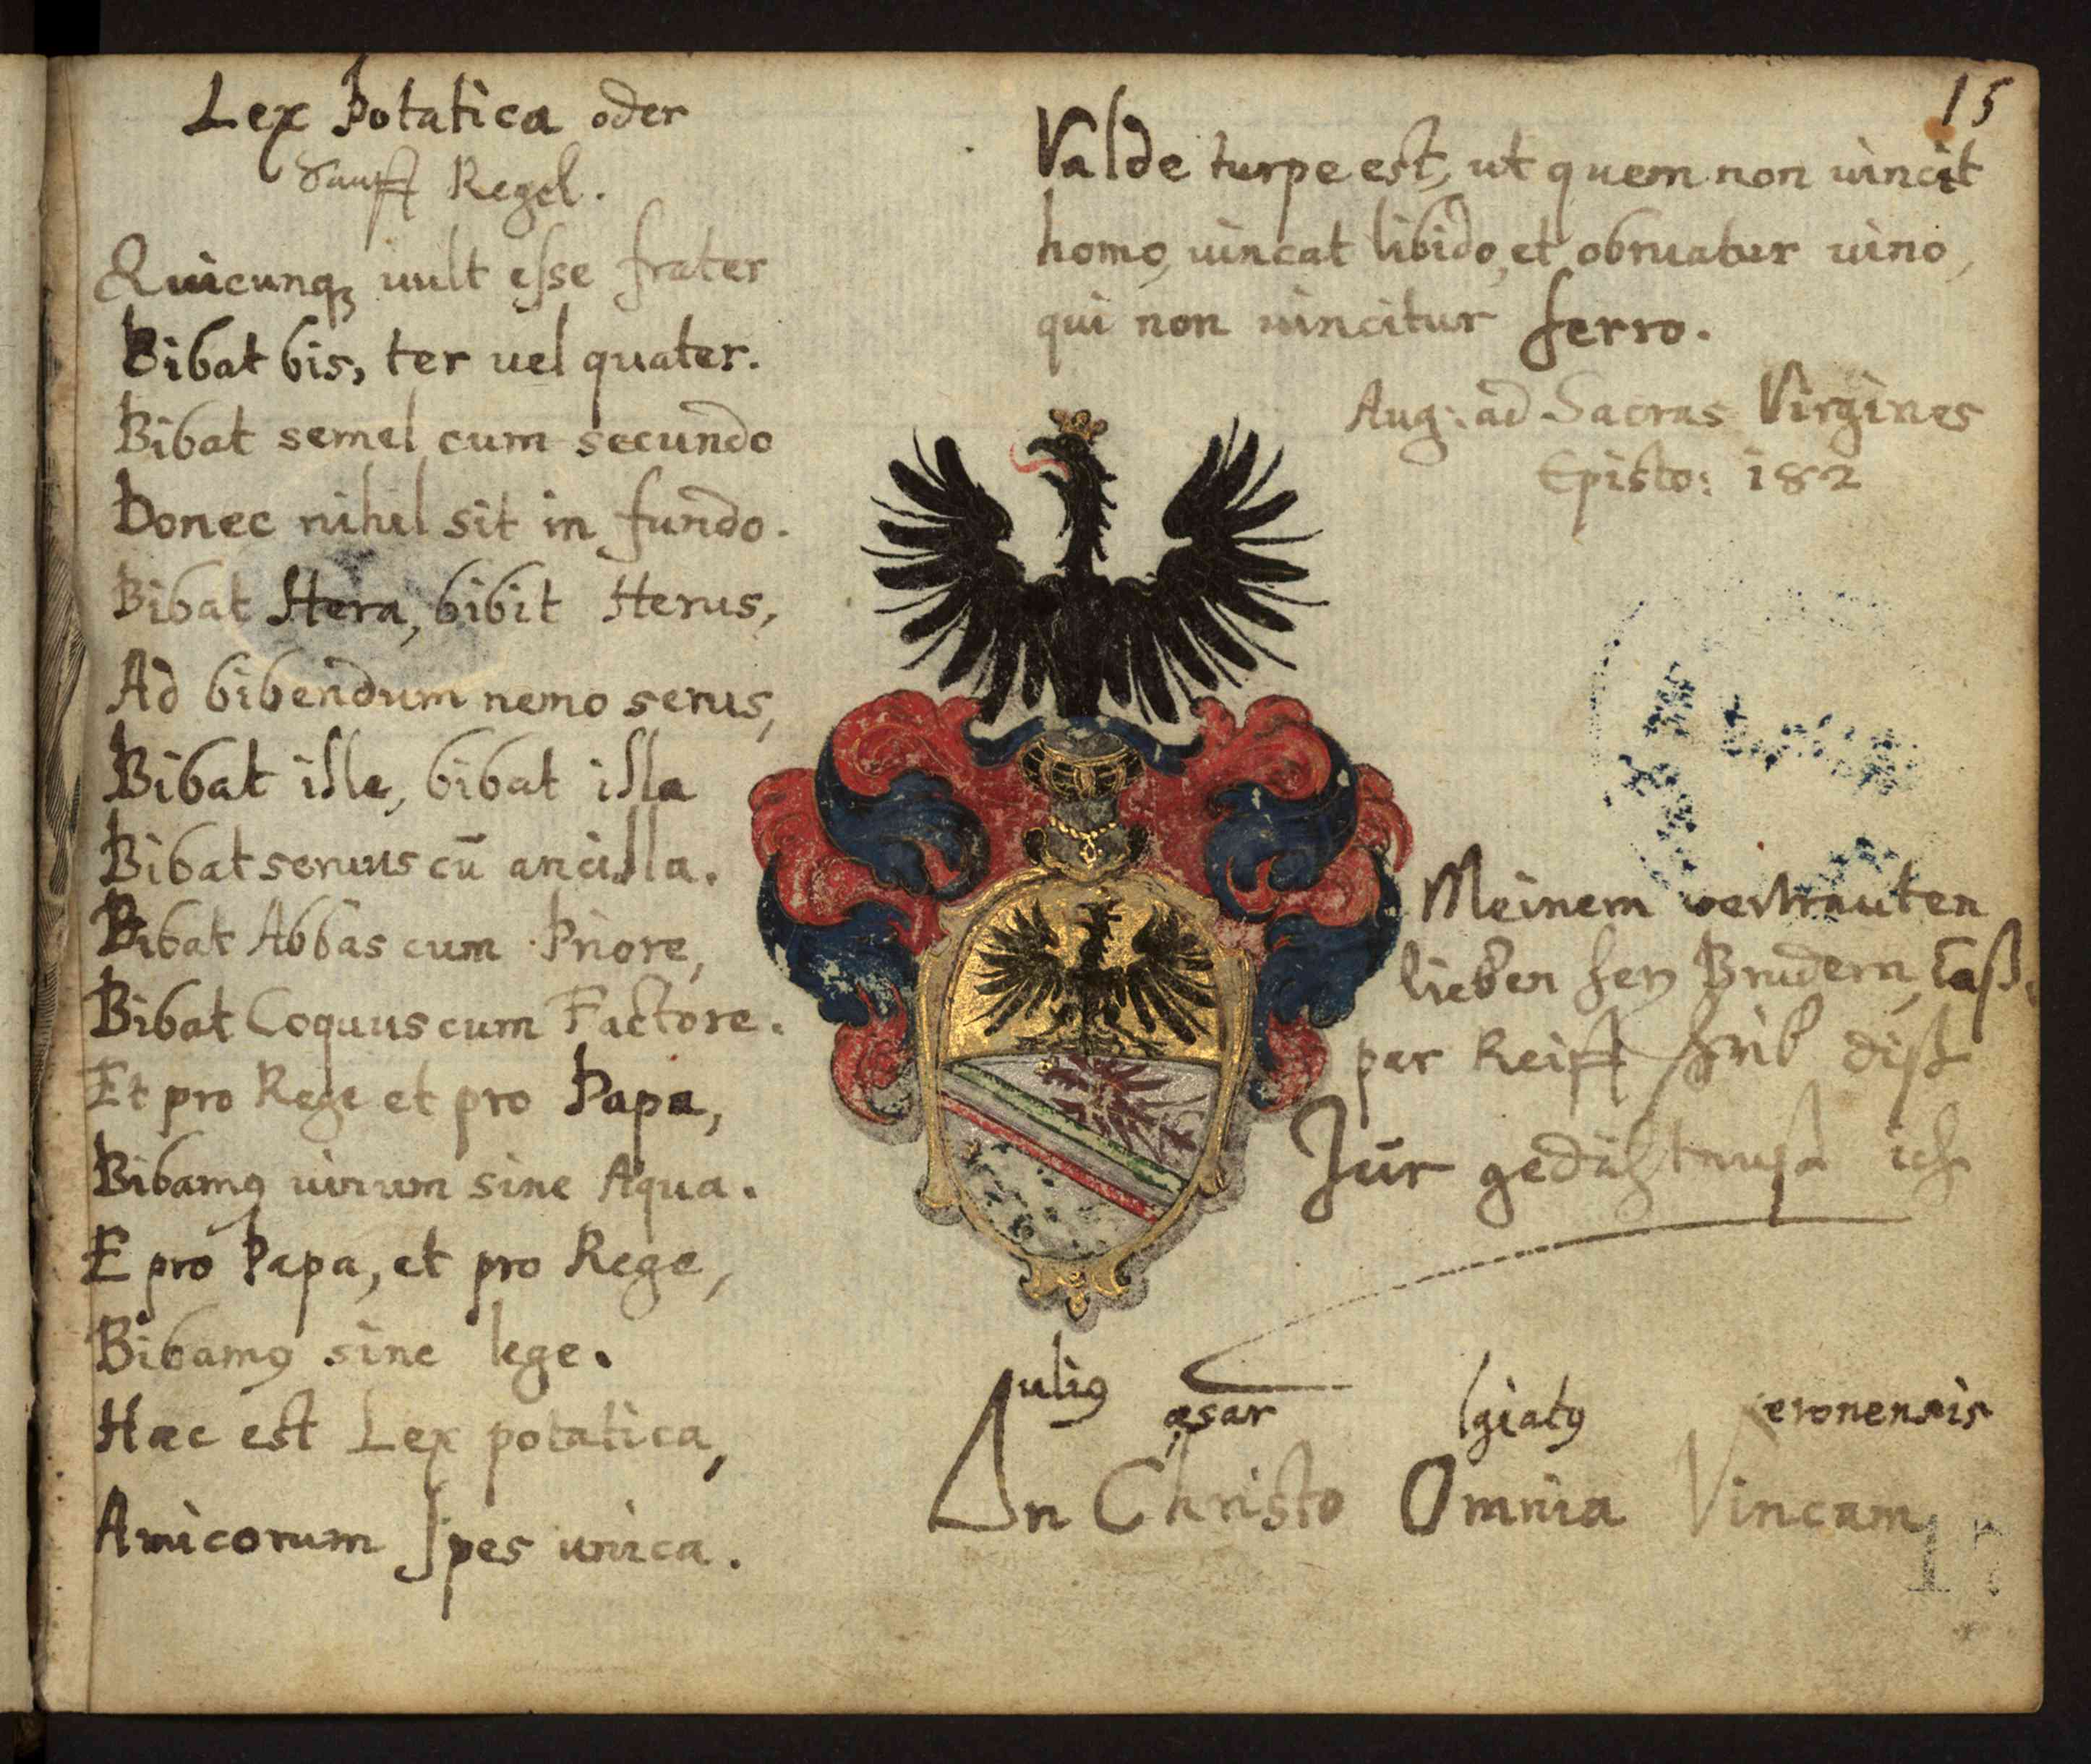 Lex Potatica oder
Sauff Regel.
Quicunqꝫ uult esse frater
Bibat bis, ter uel quater.
Bibat semel cum secundo
Donec nihil sit in fundo.
Bibat Hera, bibit Herus,
Ad bibendum nemo serus,
Bibat ille, bibat illa
Bibat seruus cū ancilla.
Bibat Abbas cum Priore,
Bibat Coquus cum Factore.
Et pro Rege et pro Papa,
Bibamꝰ uinum sine Aqua.
E pro Papa, et pro Rege,
Bibamꝰ sine lege.
Hæc est Lex potatica,
Amicorum Spes unica.
15
Valde turpe est, ut quem non uincit
homo, uincat libido, et obruatur uino,
qui non uincitur ferro.
Aug: ad Sacras Virgines
Episto: 182
Meinem vertrauten
lieben hern Brudern, Caß:
par Reiff schrib diß
Zur gedächtnuß ich
Iuliꝰ Cæsar Olgiatꝰ Veronensis
In Christo Omnia Vincam
17